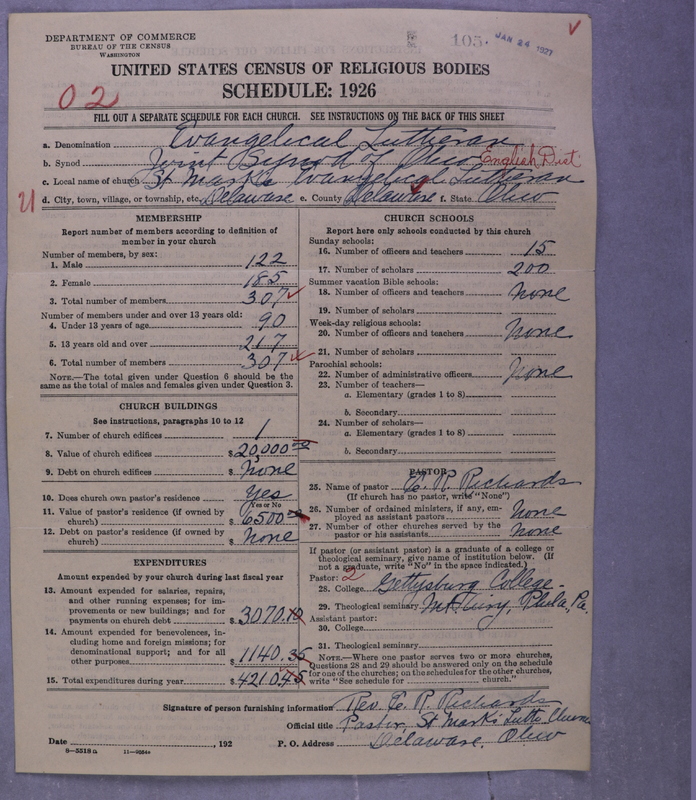 DEPARTMENT OF COMMERCE
BUREAU OF THE CENSUS
WASHINGTON
105.
JAN 24 1927
UNITED STATES CENSUS OF RELIGIOUS BODIES
SCHEDULE: 1926
02
FILL OUT A SEPARATE SCHEDULE FOR EACH CHURCH. SEE INSTRUCTIONS ON THE BACK OF THIS SHEET
a. Denomination Evangelical Lutheran
b. Synod Joint Synod of Ohio English Dist
c. Local name of church St Mark's Evangelical Lutheran
d. City, town, village, or township, etc. Delaware e. County Delaware f. State Ohio
MEMBERSHIP
Report number of members according to definition of
member in your church
Number of members, by sex:
1. Male 122
2. Female 185
3. Total number of members 307
Number of members under and over 13 years old:
4. Under 13 years of age 90
5. 13 years old and over 217
6. Total number of members 307
NOTE.—The total given under Question 6 should be the
same as the total of males and females given under Question 3.
CHURCH BUILDINGS
See instructions, paragraphs 10 to 12
7. Number of church edifices 1
8. Value of church edifices $20,000.00
9. Debt on church edifices $None
10. Does church own pastor's residence Yes
Yes or No
11. Value of pastor's residence (if owned by
church) $6500.00
12. Debt on pastor's residence (if owned by
church) $None
EXPENDITURES
Amount expended by your church during last fiscal year
13. Amount expended for salaries, repairs,
and other running expenses; for im-
provements or new buildings; and for
payments on church debt $3070.10
14. Amount expended for benevolences, in-
cluding home and foreign missions; for
denominational support; and for all
other purposes $1140.35
15. Total expenditures during year $4210.45
CHURCH SCHOOLS
Report here only schools conducted by this church
Sunday schools:
16. Number of officers and teachers 15
17. Number of scholars 200
Summer vacation Bible schools:
18. Number of officers and teachers None
19. Number of scholars
Week-day religious schools:
20. Number of officers and teachers None
21. Number of scholars
Parochial schools:
22. Number of administrative officers None
23. Number of teachers—
a. Elementary (grades 1 to 8)
b. Secondary
24. Number of scholars—
a. Elementary (grades 1 to 8)
b. Secondary
PASTOR
25. Name of pastor E. R. Richards
(If church has no pastor, write "None")
26. Number of ordained ministers, if any, em-
ployed as assistant pastors None
27. Number of other churches served by the
pastor or his assistants None
If pastor (or assistant pastor) is a graduate of a college or
theological seminary, give name of institution below. (If
not a graduate, write "No" in the space indicated.)
Pastor: 2
28. College Gettysburg College-
29. Theological seminary Mt Airy, Phila, Pa.
Assistant pastor:
30. College
31. Theological seminary
NOTE.—Where one pastor serves two or more churches,
Questions 28 and 29 should be answered only on the schedule
for one of the churches; on the schedules for the other churches,
write "See schedule for church."
Signature of person furnishing information Rev. E. R. Richards
Official title Pastor, St Mark's Luth. Church
Date , 192 P. O. Address Delaware, Ohio
8—5518a 11—9884